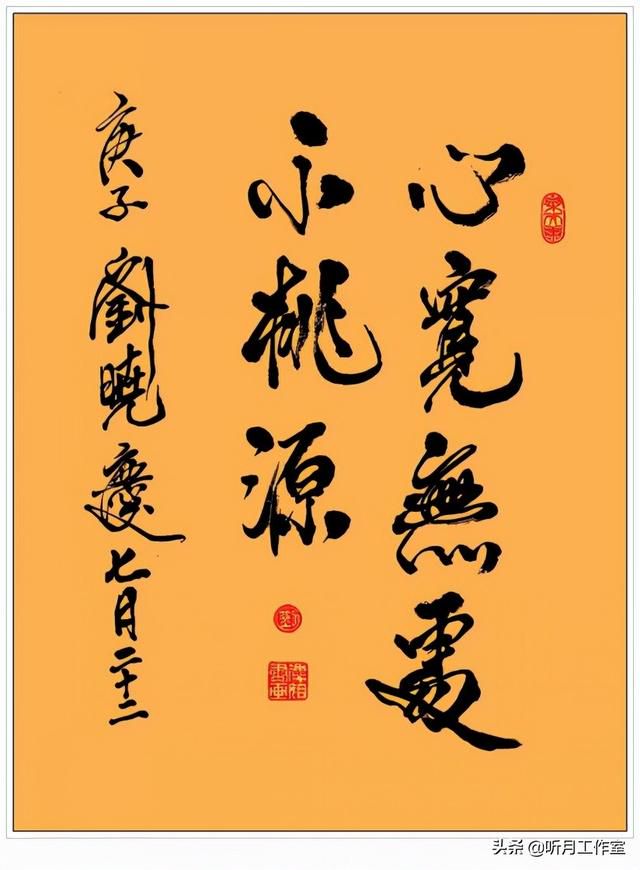 心寬無處
不桃源
庚子 劉曉慶 七月二十二
头条 @听月工作室